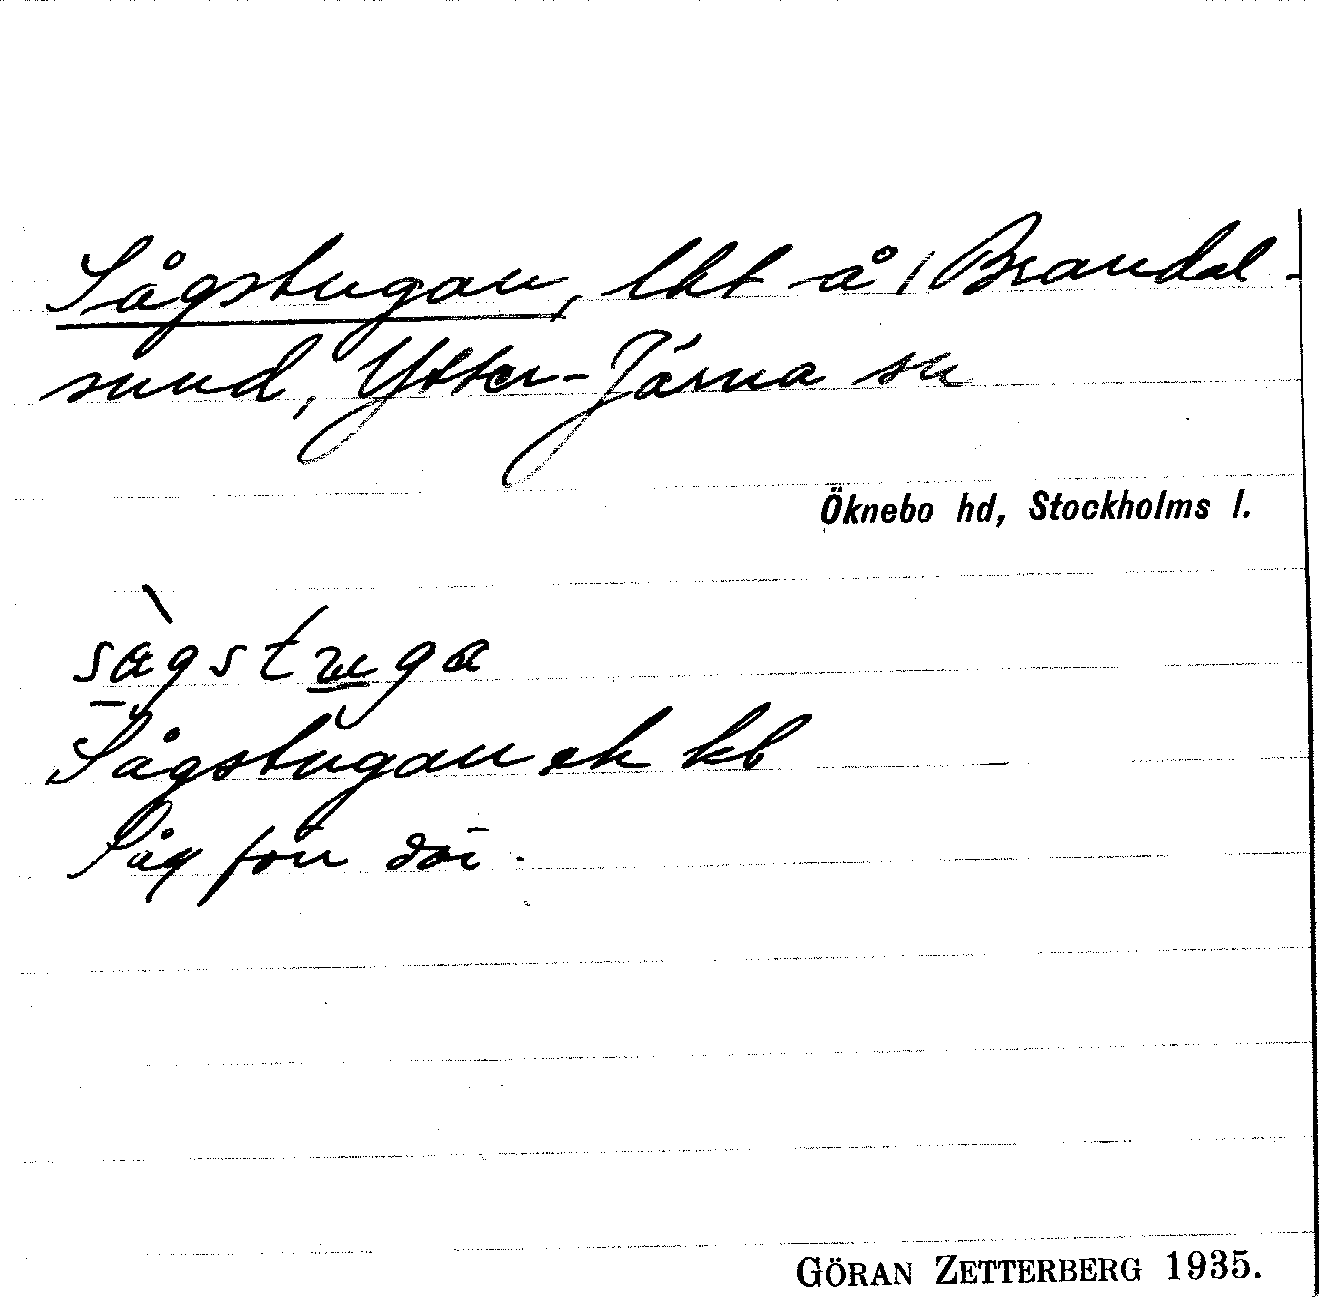 Sågstugan, lkt å/Brandal-
sund, Ytter-Järna sn
Öknebo hd, Stockholms l.
sàgstuga
Sågstugan ek kb
Såg förr
GÖRAN ZETTERBERG 1935.